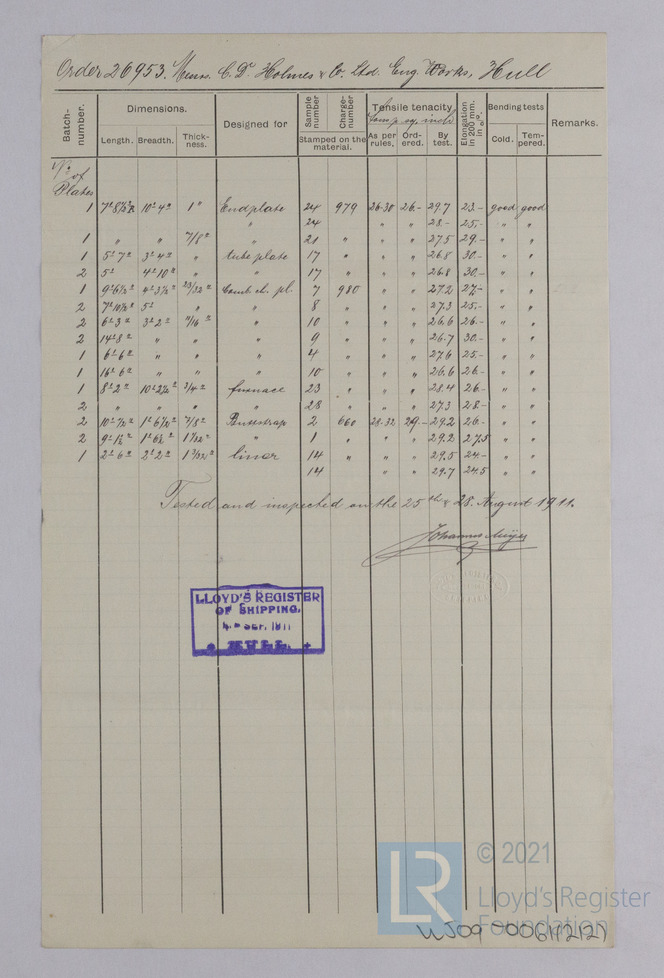 Order 26953. Messrs. C. D. Holmes & Co. Ltd. Eng. Works, Hull
Batch-number. Dimensions. Designed for Sample number Charge-number Tensile tenacity Elongation in 200 mm. in %. Bending tests Remarks.
sq. inch
Length. Breadth. Thick-ness. Stamped on the material. As per rules, Ord-ered. By test. Cold. Tem-pered.
No. of
Plates
1 10'-4" 1" Endplate 24 979 26-30 26.- 29.7 23.- good good
" 24 " " 28.- 25.- " "
1 " " 7/8" " 21 " " " 27.5 29.- " "
1 5'-7" 3'-4" " tube plate 17 " " " 26.8 30.- " "
2 5' 4'-10" " " 17 " " " 26.8 30.- " "
1 9'-6½" 4'-3½" 23/32" Comb. ch. pl. 7 980 " " 27.2 27.- " "
2 7'-10½" 5' " " 8 " " " 27.3 25.- " "
2 6'-3" 3'-2" 11/16" " 10 " " " 26.6 26.- " "
2 14'-8" " " " 9 " " " 26.7 30.- " "
1 6'-6" " " " 4 " " " 27.6 25.- " "
1 16'-6" " " " 10 " " " 26.6 26.- " "
1 8'-2" 3/4" furnace 23 " " " 28.4 26.- " "
2 " " " " 28 " " " 27.3 28.- " "
2 10'-7½" 1'-6½" 7/8" 2 660 28-32 29.- 29.2 26.- " "
2 1 1/32" " 1 " " " 29.2 27.5 " "
1 2'-6" 2'-2" 1 3/32" liner 14 " " " 29.5 24.- " "
14 " " 29.7 24.5 " "
Tested and inspected on the 25th & 28. August 1911.
Johannes Meijer
LLOYD'S REGISTER
OF SHIPPING.
4 SEP. 1911
HULL.
LR
© 2021
Lloyd's Register
Foundation
WJ09-0061(212)